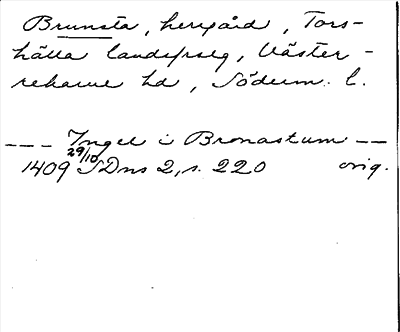 Brunsta, herrgård, Tors-
hälla landsfrslg, Väster-
rekarne hd, Söderm. l.
--- Ingel i Bronastum --
1409 29/10 SDns 2, s. 220 orig.